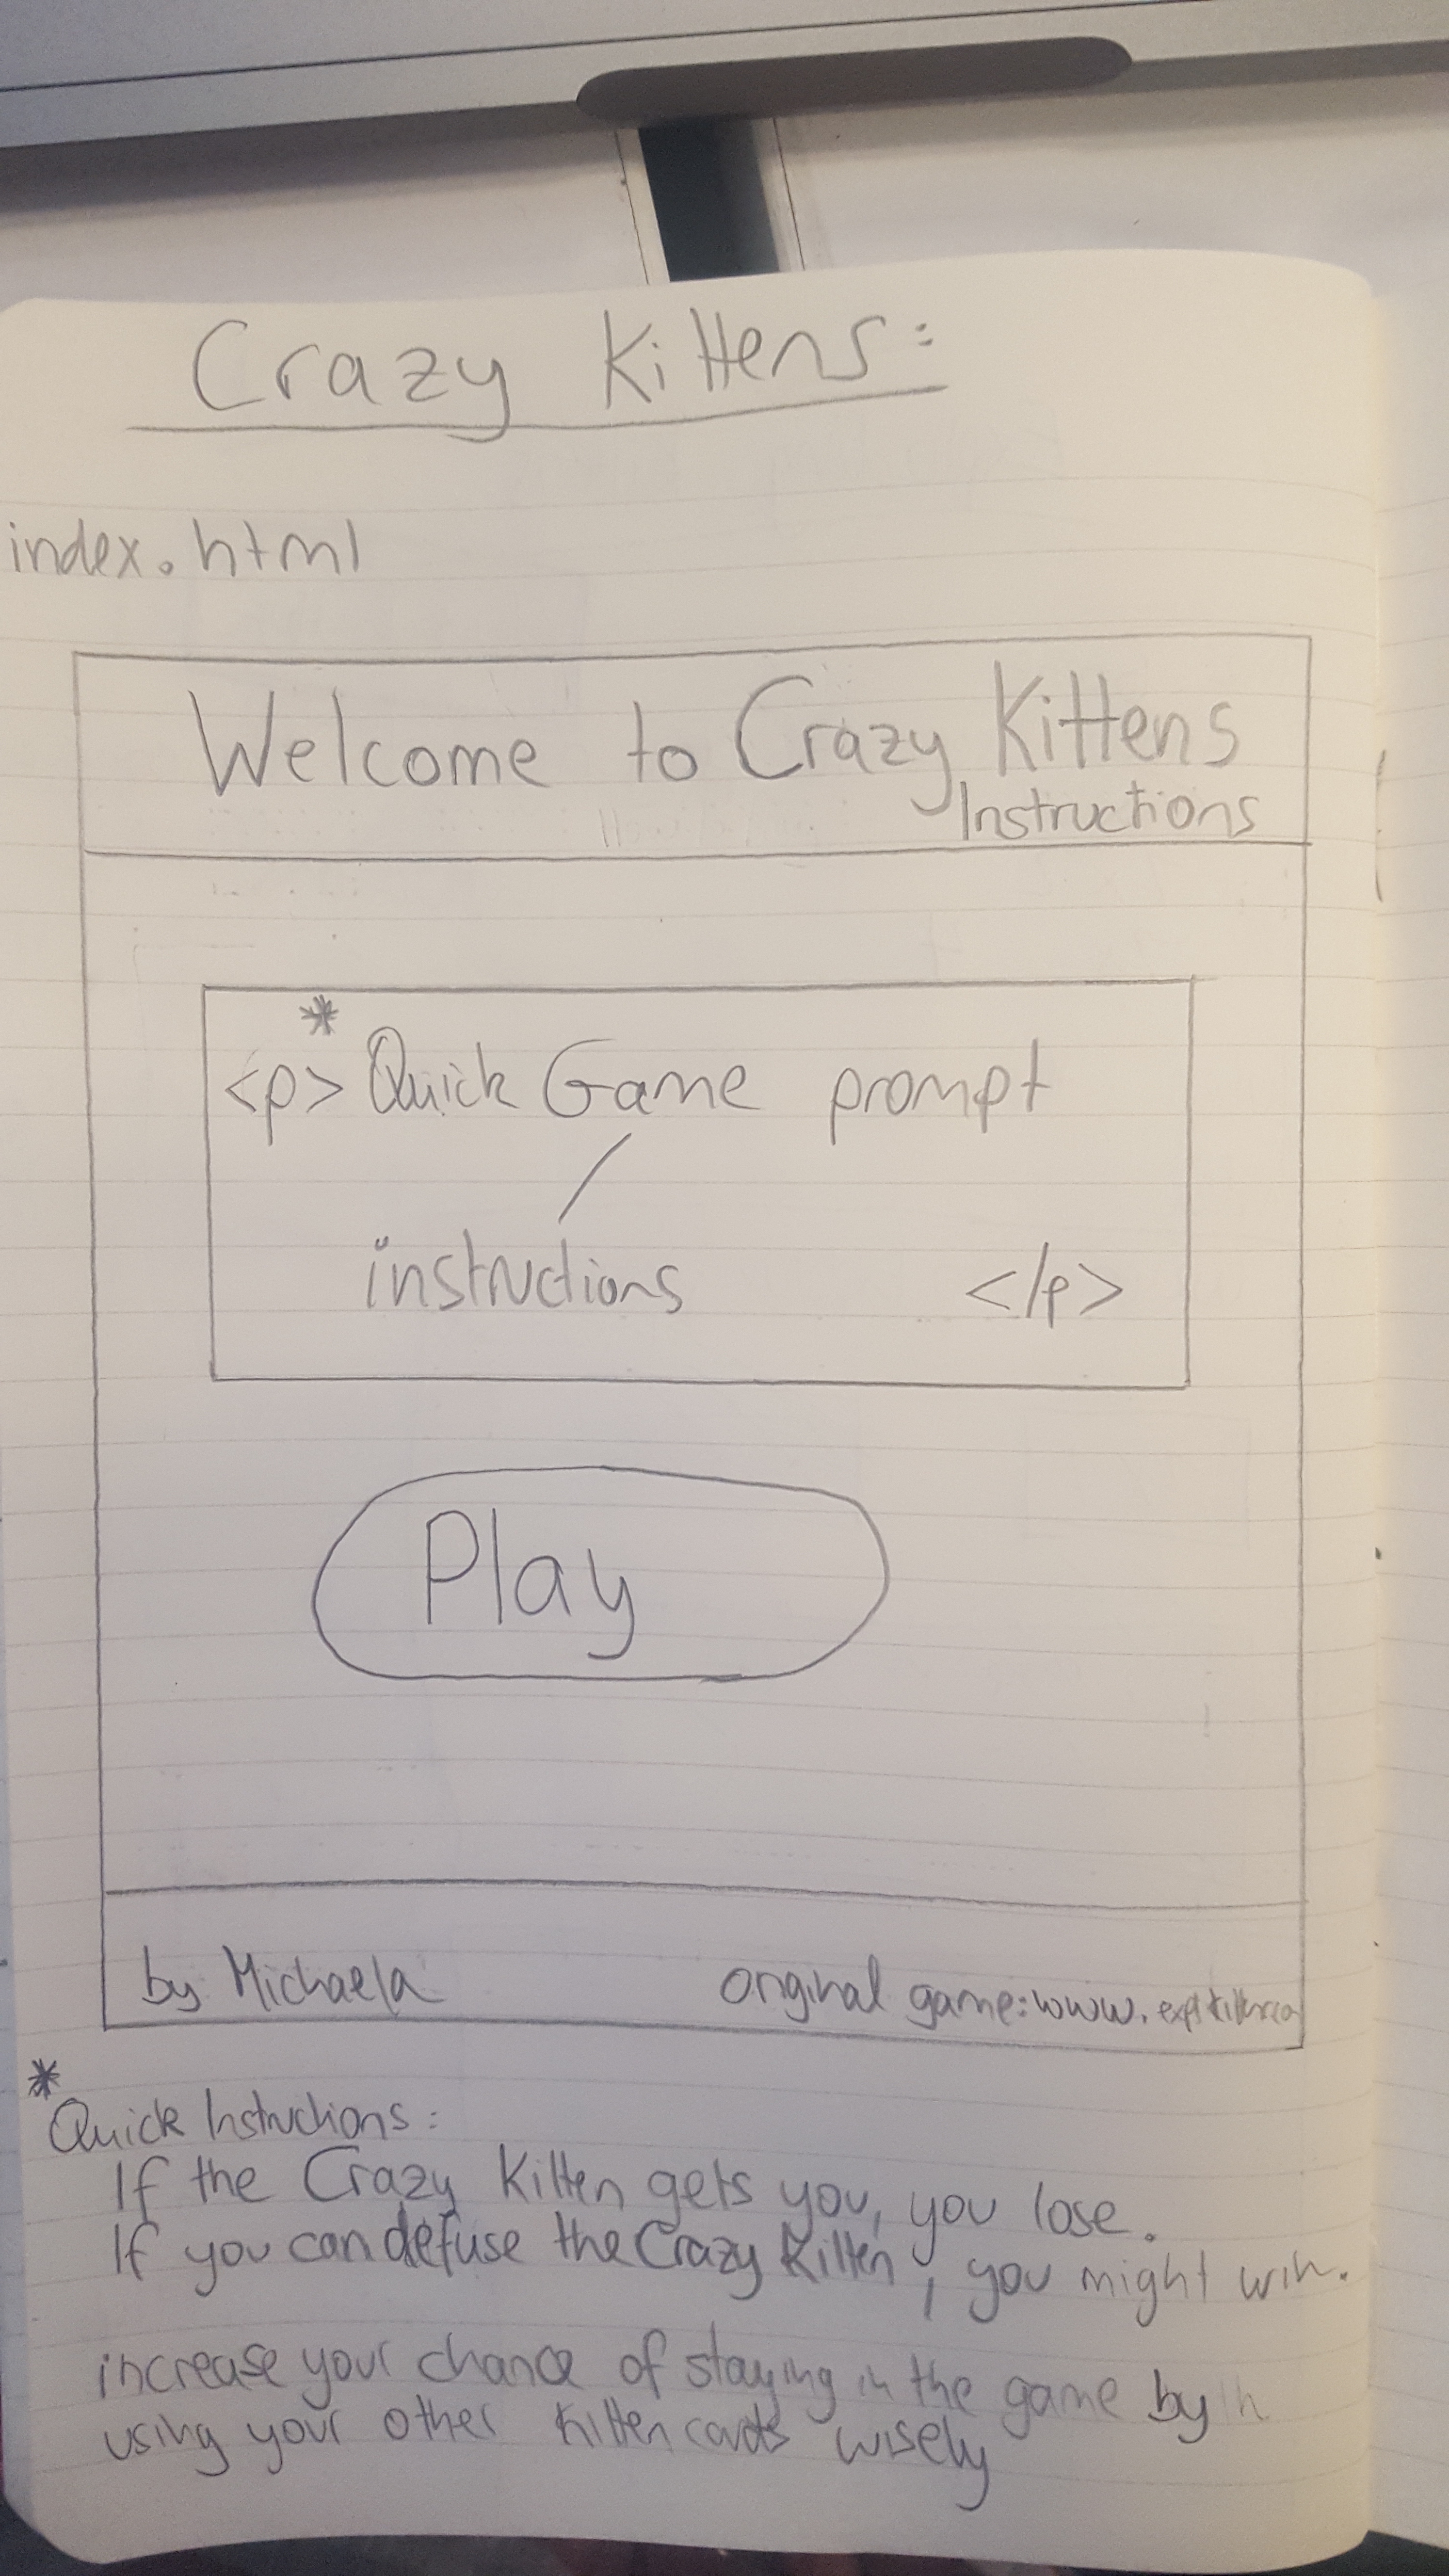 Crazy Kittens:
index.html
Welcome to Crazy Kittens
Instructions
*
<p> Quick Game prompt
instructions </p>
Play
by Michaela original game: www.
*
Quick Instructions:
If the Crazy Kitten gets you, you lose.
If you can defuse the Crazy Kitten, you might win.
increase your chance of staying in the game by
using your other kitten cards wisely